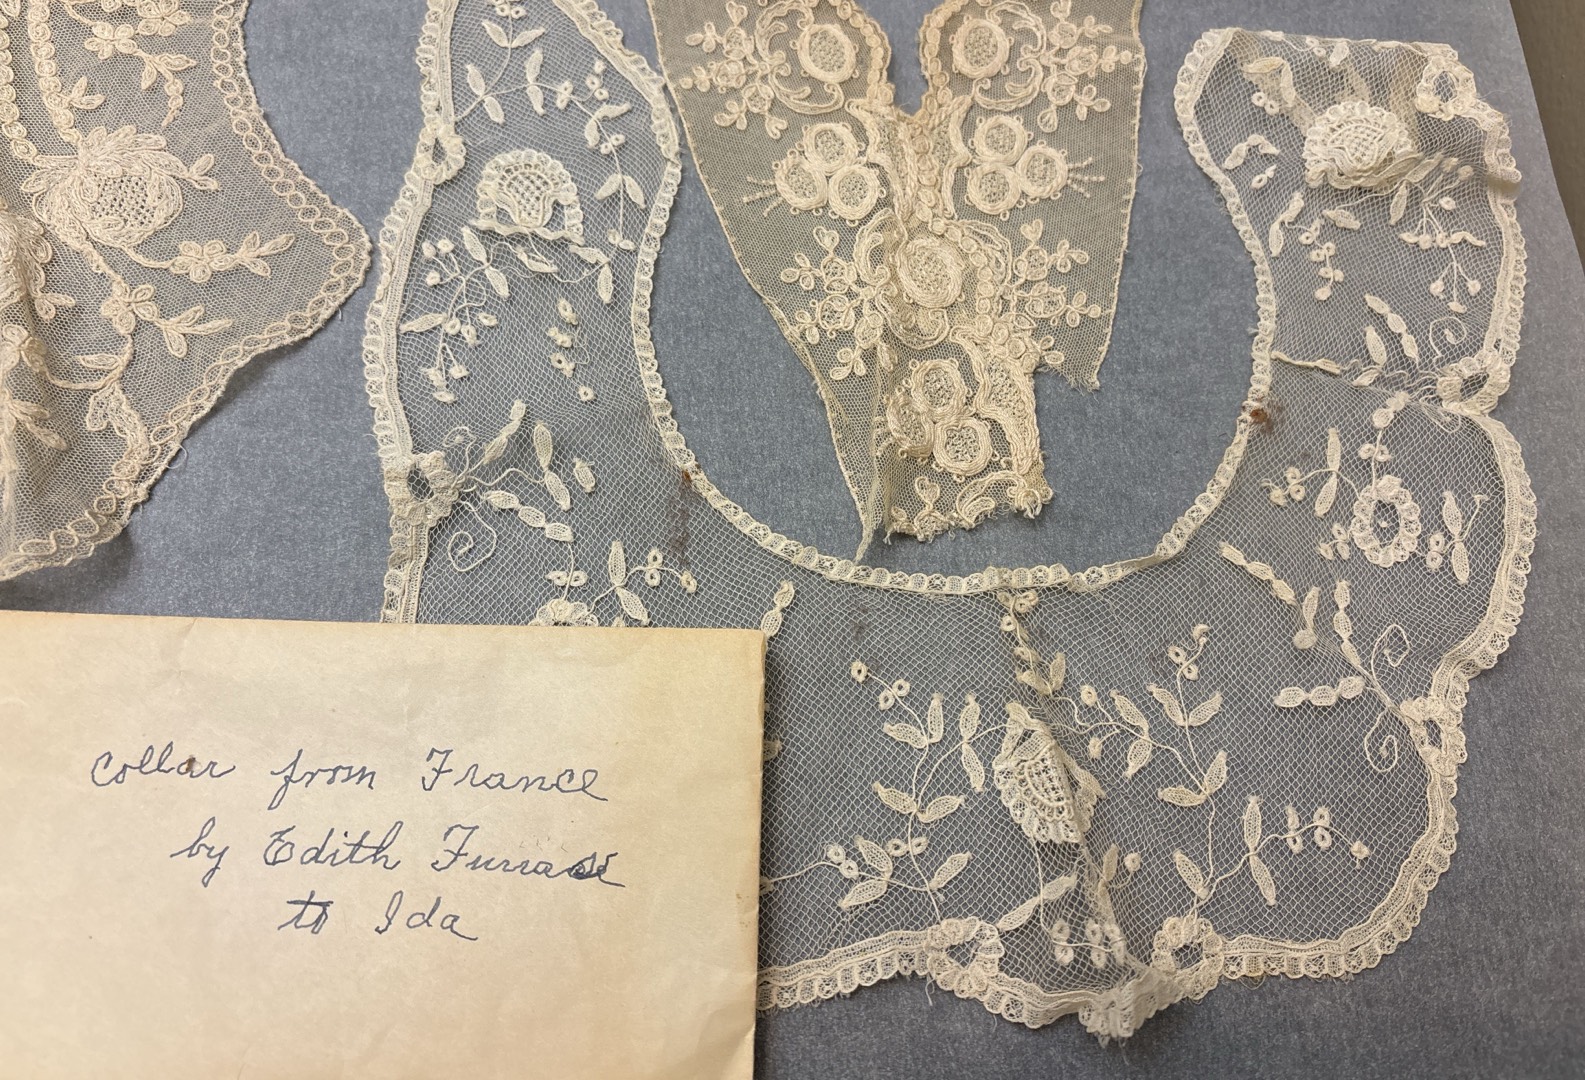 Collar from France
by Edith
to Ida